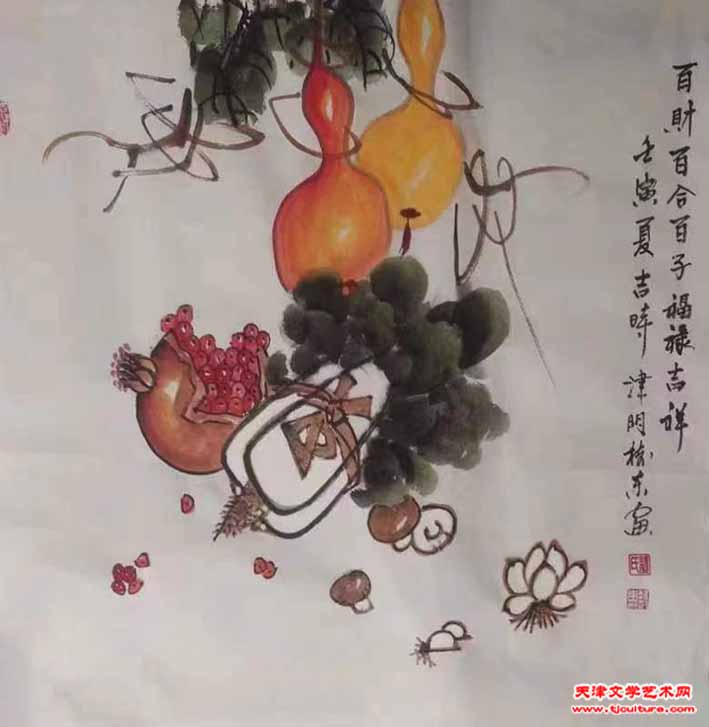 百财百合百子福禄吉祥
壬寅夏吉時津門栋东画
天津文学艺术网
www.tjculture.com